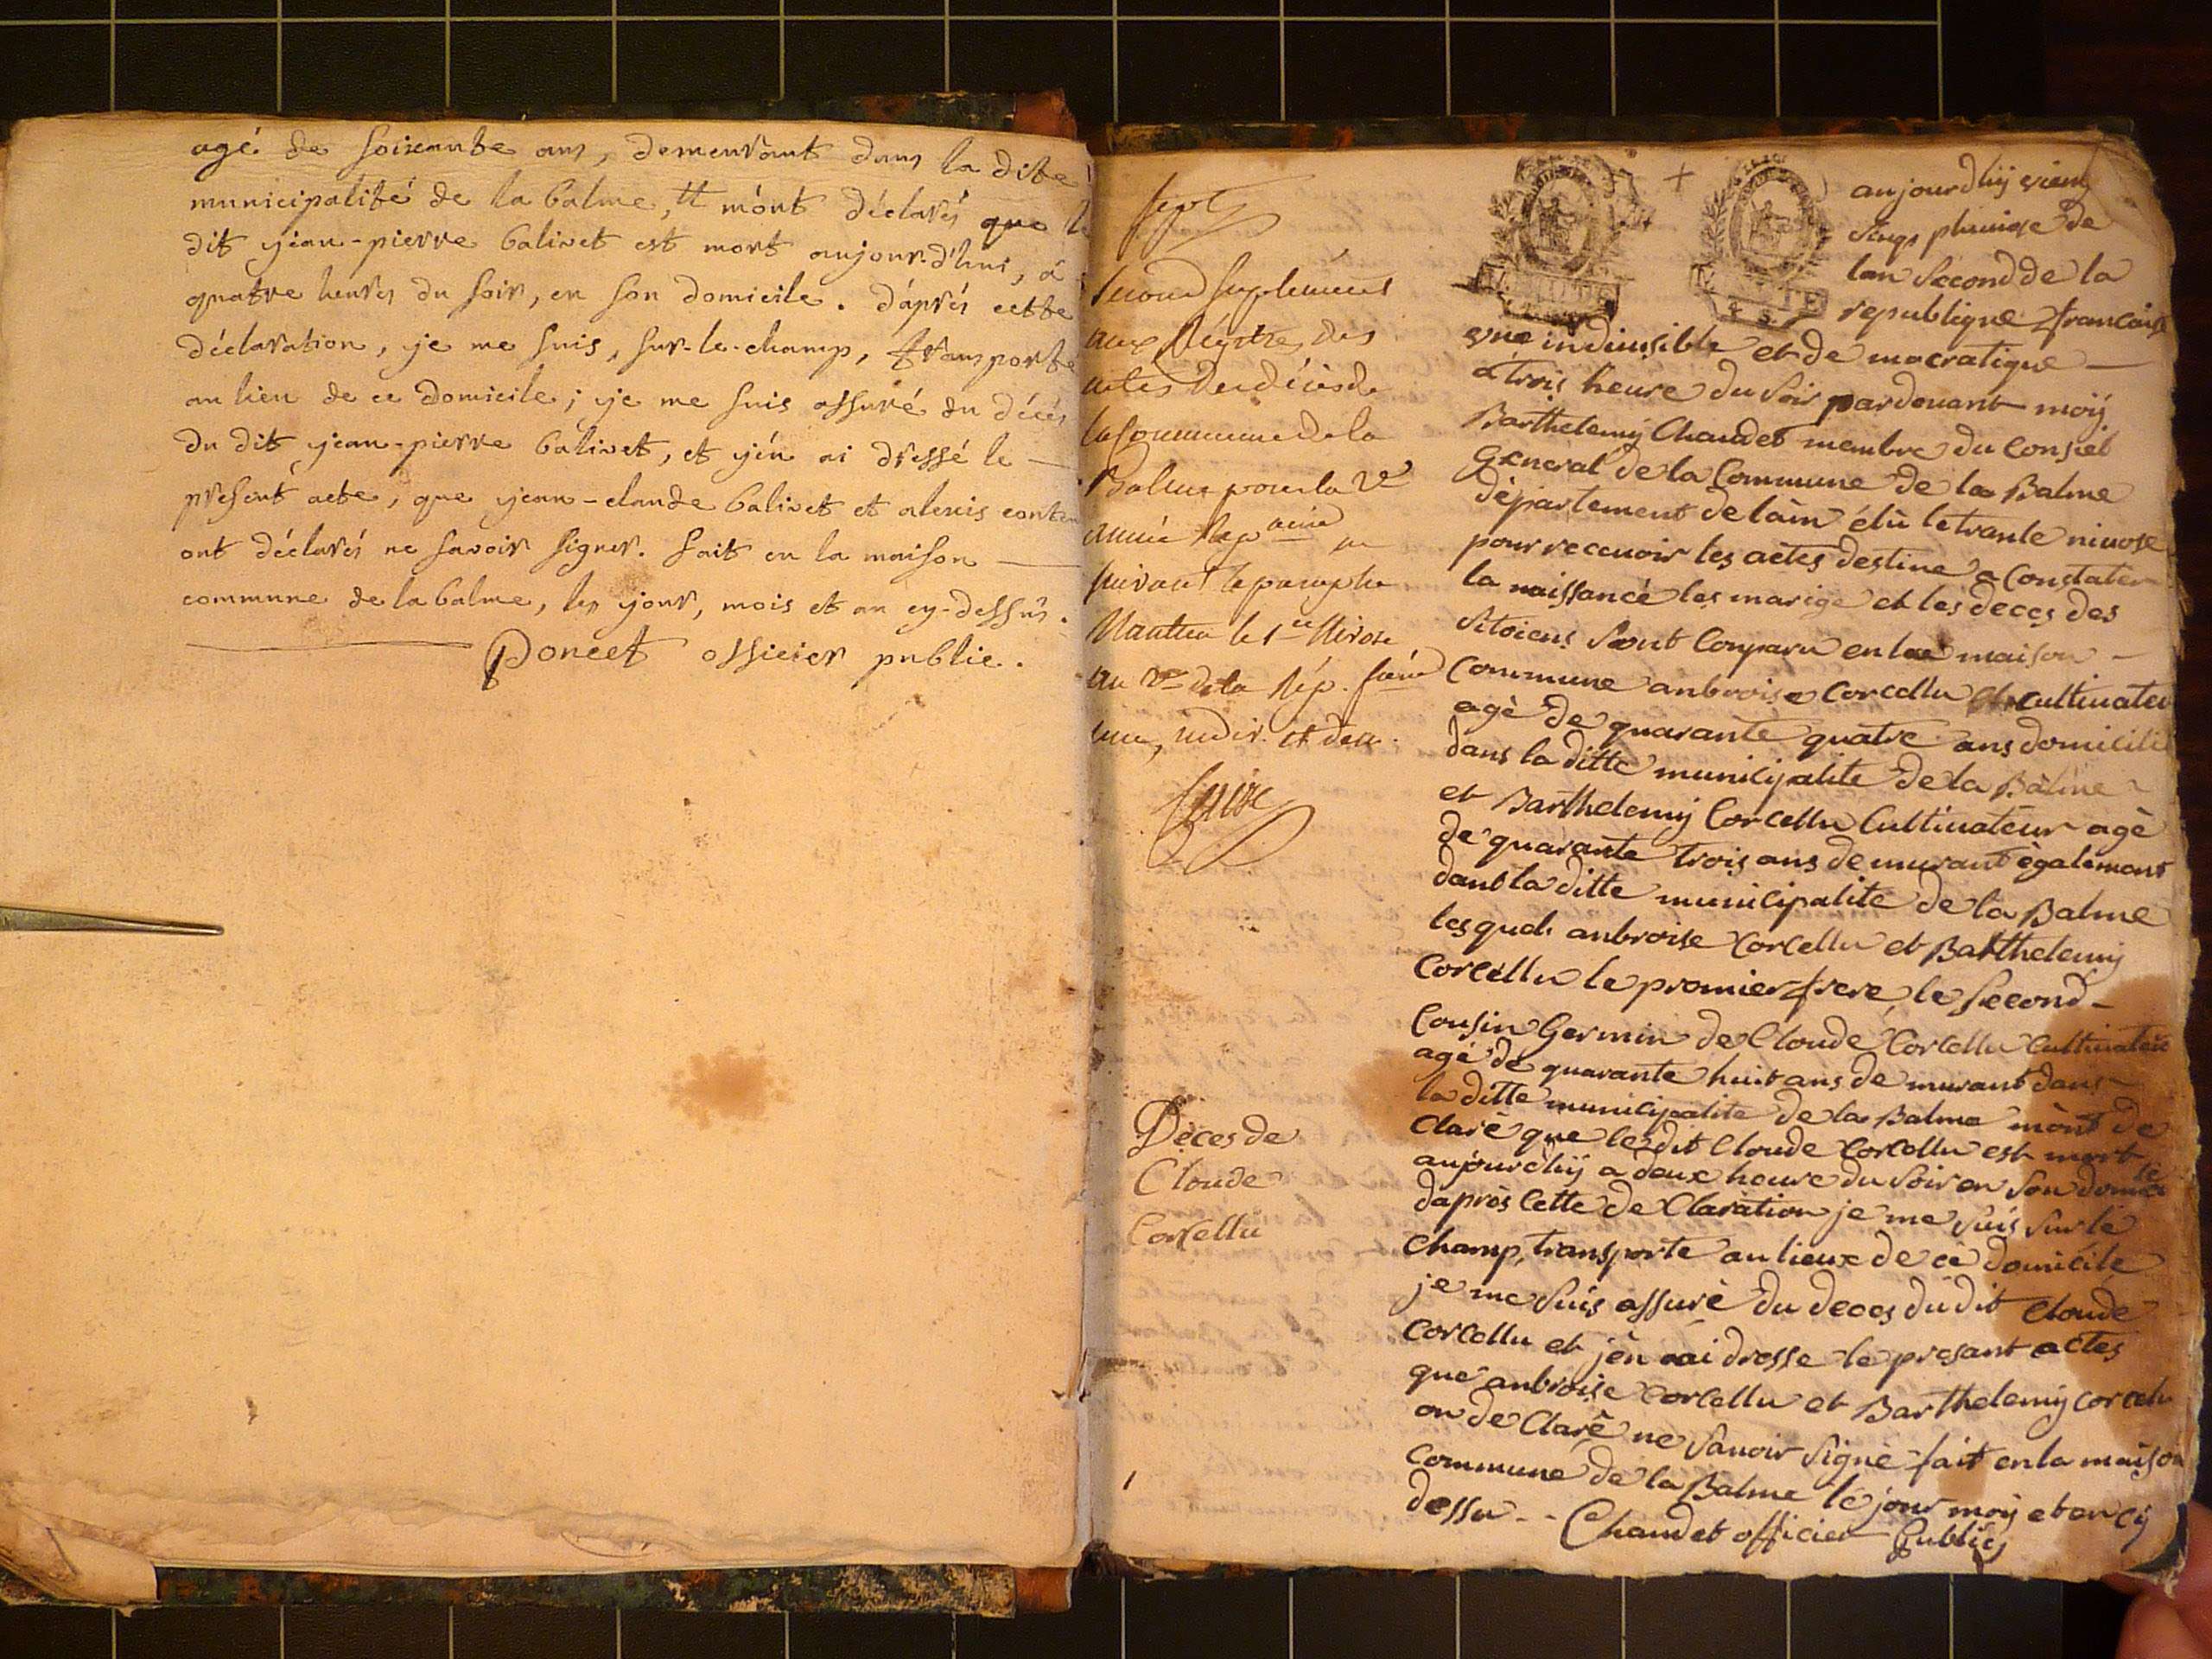 agé de soixante ans, demeurant dans la dite
municipalité de la balme, Il m'ont déclarés que le
dit jean-pierre balivet est mort aujourd'hui, à
quatre heures du soir, en son domicile. d'aprés cette
déclaration, je me suis, sur-le-champ, transporté
au lieu de ce domicile; je me suis assuré du décés
du dit jean-pierre balivet, et j'én ai dressé le
présent acte, que jean-claude balivet et alexis
ont déclarés ne savoir signer. fait en la maison
commune de la balme, les jour, mois et an cy-dessus.
Poncet officier public.
sept
Second suplément
aux Régitres des
actes de décès de
la Commune de la
Balme pour la 2e
année
suivant le paraphe
Nantua le 1er Nivose
au 2e de la Rép. fse
une, indiv. et dem.
Décés de
Cloude
Corcellu
aujourdhÿ vient
sinqs pluviose de
lan second de la
republique francaise
vne indiuisible et de mocratique
a trois heure du soir pardouant moÿ
Barthelemÿ Chaudet membre du Consiel
General de la Commune de la Balme
département de láin élù le trante nivose
pour recenoir les actes destine a Constater
la naissance les marige et les deces des
sitoiens sont Conparu en la maison
Commune anbroise Corcellu cultiuateu
agè de quarante quatre ans domicilié
dans la ditte municipalite de la Balme
et Barthelemÿ Corcellu Cultiuateur agè
de quarante trois ans demurant ègalemant
dans la ditte municipalite de la Balme
lesquels anbroise Corcellu et Barthelemÿ
Corcellu le promier frere le second
Cousin Germin de Cloude Corcellu Cultiuateu
agé de quarante huit ans de murant dans
la ditte municipalite de la Balme mònt de
Claré que le dit Cloude Corcellu est mort
aujourdhÿ a deux heure du soir en son domicile
daprès Cette de Claration je me suis sur le
champ, transporte au lieux de ce domicile
je me suis assurè du deces dudit Cloude
Corcellu et jèn aidresse le presant actes
que anbroise Corcellu et Barthelemÿ Corcelu
on de Clarè ne sauoir signè fait en la maison
Commune de la Balme le jour moÿ et an cÿ
dessu - - Chaudet officier Publics